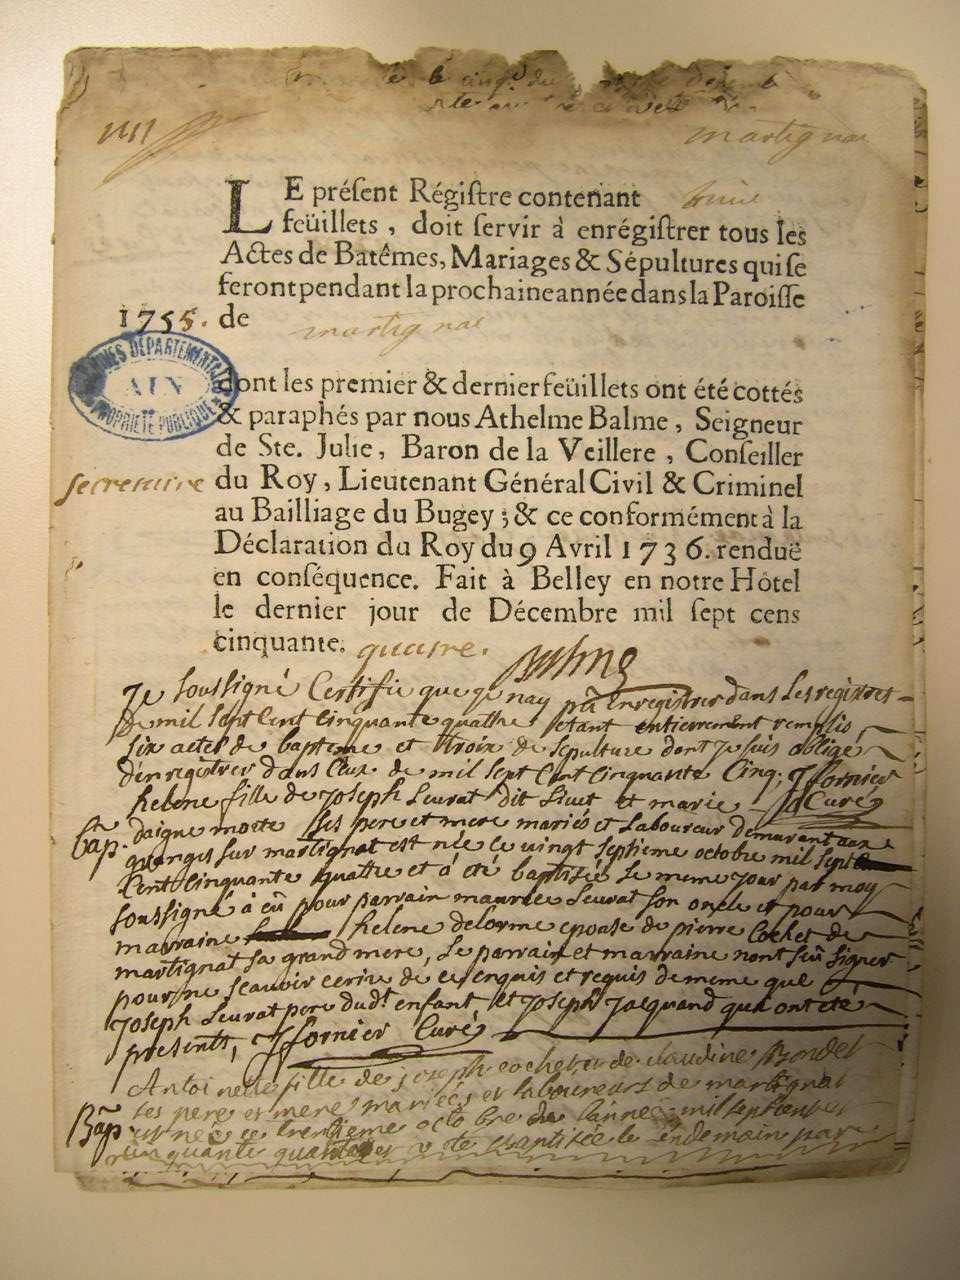 martignat
LE préſent Régiſtre contenant
feüillets, doit ſervir à enrégiſtrer tous les
Actes de Batêmes, Mariages & Sépultures qui ſe
feront pendant la prochaine année dans la Paroiſſe
1755. de martignat
ARCHIVES DÉPARTEMENTALES
AIN
PROPRIÉTÉ PUBLIQUE
dont les premier & dernier feüillets ont été cottés
& paraphés par nous Athelme Balme, Seigneur
de Ste. Julie, Baron de la Veillere, Conſeiller
secretaire du Roy, Lieutenant Général Civil & Criminel
au Bailliage du Bugey; & ce conformément à la
Déclaration du Roy du 9 Avril 1736. renduë
en conſéquence. Fait à Belley en notre Hôtel
le dernier jour de Décembre mil ſept cens
cinquante. quatre. Balme
Je soussigné Certifie que je nay pû Enregistrer dans les registres
de mil sept Cent Cinquante quatthe etant entierement remplis
six actes de bapteme et troix de sepulture dont je suis obligé
d'enregistrer dans Ceux de mil sept Cent Cinquante Cinq; Jfornier
helene fille de Joseph Leurat dit Livet et marie Curé
Bap. daigne morte ses pere et mere mariés et Laboureur demurant aux
granges sur martignat est née le vingt septieme octobre mil sept
Cent Cinquante quattre et a été baptisée le meme jour par moy
soussigné à eû pour parrain maurice Leurat son oncle et pour
marraine helene delorme epouse de pierre Cochet de
martignat sa grand mere, le parrain et marraine nont sçû signer
pour ne sçauoir ecrire de ce enquis et requis de meme que
Joseph Leurat pere dudt. enfant et Joseph Jacquand qui ont été
presents, Jfornier Curé
Antoinette fille de joseph cochet et de claudine Bondet
ses pere et mere mariés et laboureurs de martignat
Bap. est née le trentieme octobre de l'année mil sept cent
cinquante quattre et a été baptisée le lendemain par